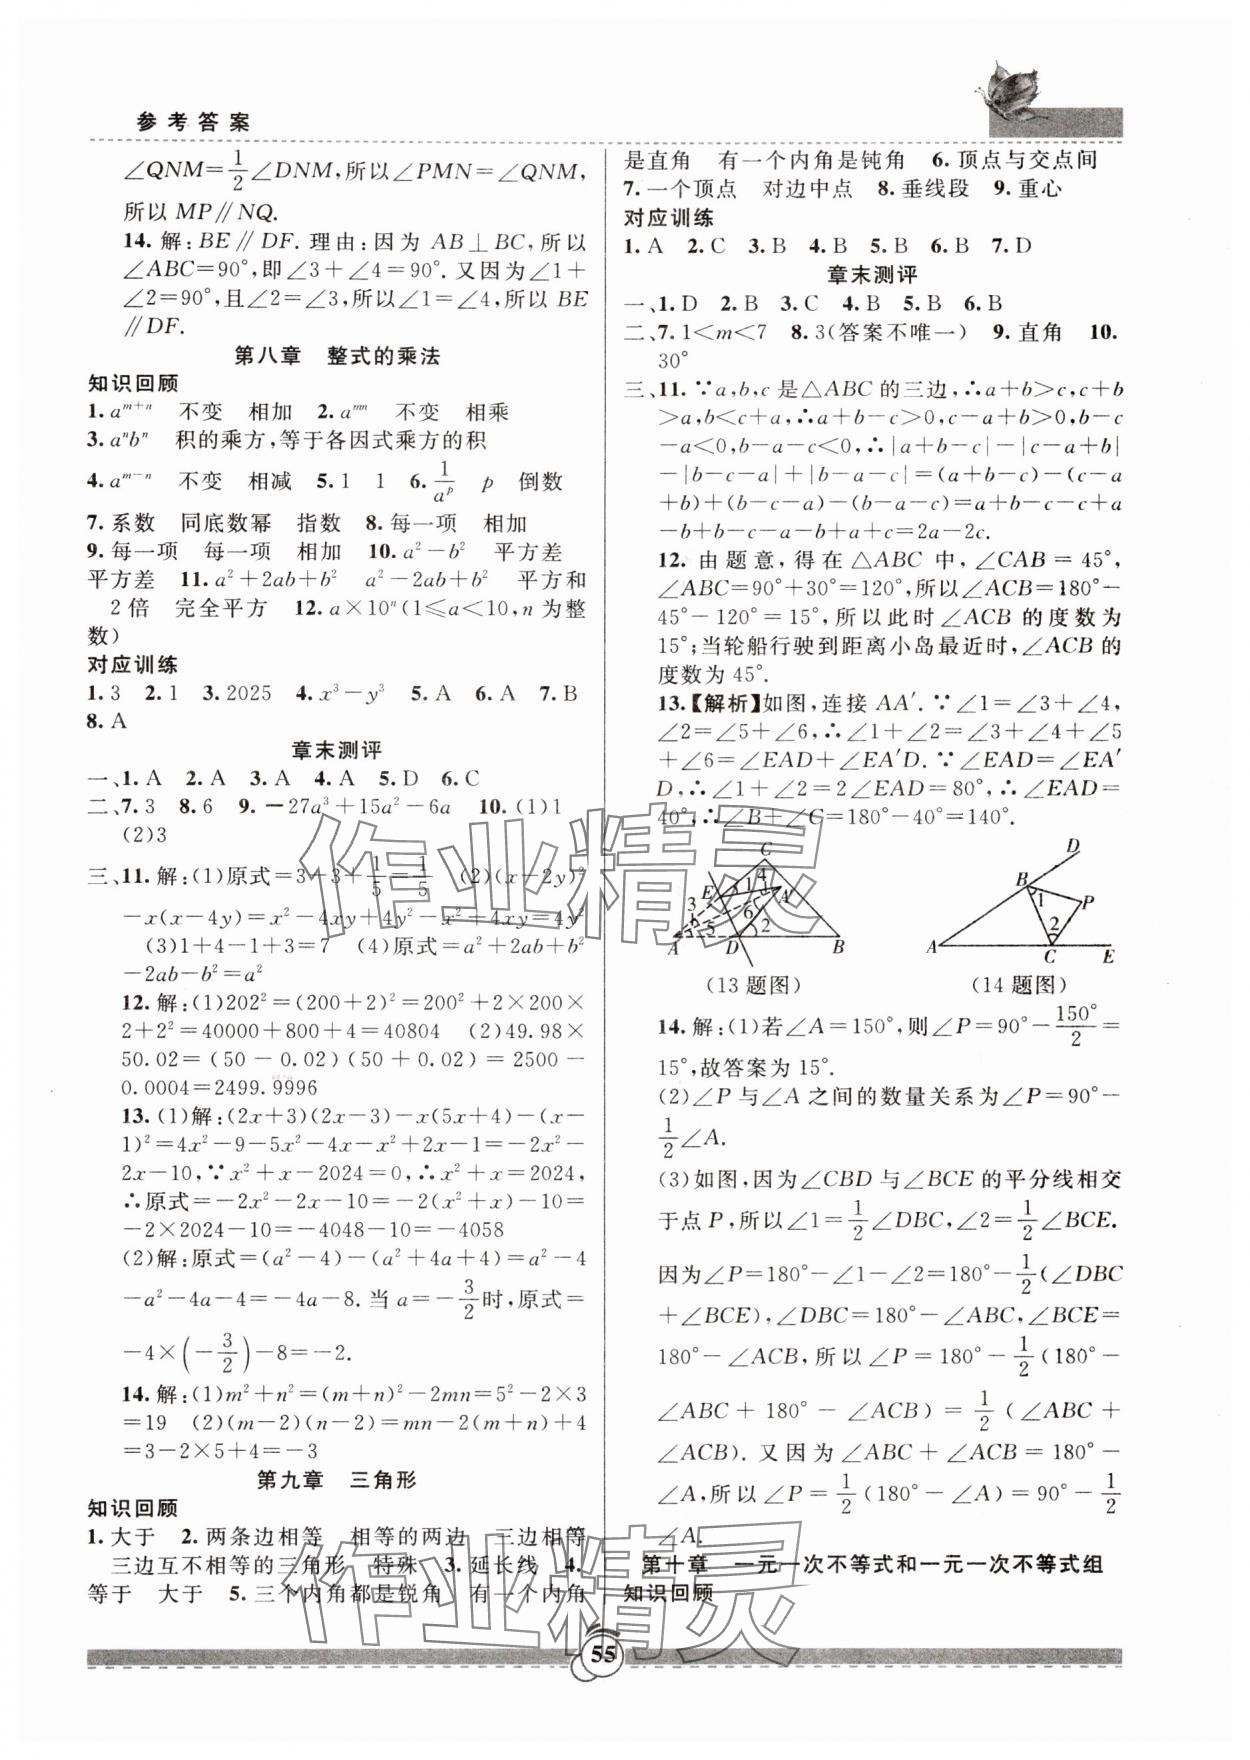 参考答案
∠QNM=1/2∠DNM,所以∠PMN=∠QNM,
所以MP∥NQ.
14.解:BE∥DF.理由:因为AB⊥BC,所以
∠ABC=90°,即∠3+∠4=90°.又因为∠1+
∠2=90°,且∠2=∠3,所以∠1=∠4,所以BE
∥DF.
第八章 整式的乘法
知识回顾
1.a^{m+n} 不变 相加 2.a^{mn} 不变 相乘
3.a^n b^n 积的乘方,等于各因式乘方的积
4.a^{m-n} 不变 相减 5.1 1 6.1/a^p p 倒数
7.系数 同底数幂 指数 8.每一项 相加
9.每一项 每一项 相加 10.a²-b² 平方差
平方差 11.a²+2ab+b² a²-2ab+b² 平方和
2倍 完全平方 12.a×10^n(1≤a<10,n为整
数)
对应训练
1.3 2.1 3.2025 4.x³-y³ 5.A 6.A 7.B
8.A
章末测评
一、1.A 2.A 3.A 4.A 5.D 6.C
二、7.3 8.6 9.-27a³+15a²-6a 10.(1)1
(2)3
三、11.解:(1)原式=3-3+1/5=1/5 (2)(x-2y)²
-x(x-4y)=x²-4xy+4y²-x²+4xy=4y²
(3)1+4-1+3=7 (4)原式=a²+2ab+b²
-2ab-b²=a²
12.解:(1)202²=(200+2)²=200²+2×200×
2+2²=40000+800+4=40804 (2)49.98×
50.02=(50-0.02)(50+0.02)=2500-
0.0004=2499.9996
13.(1)解:(2x+3)(2x-3)-x(5x+4)-(x-
1)²=4x²-9-5x²-4x-x²+2x-1=-2x²-
2x-10,∵x²+x-2024=0,∴x²+x=2024,
∴原式=-2x²-2x-10=-2(x²+x)-10=
-2×2024-10=-4048-10=-4058
(2)解:原式=(a²-4)-(a²+4a+4)=a²-4
-a²-4a-4=-4a-8.当a=-3/2时,原式=
-4×(-3/2)-8=-2.
14.解:(1)m²+n²=(m+n)²-2mn=5²-2×3
=19 (2)(m-2)(n-2)=mn-2(m+n)+4
=3-2×5+4=-3
第九章 三角形
知识回顾
1.大于 2.两条边相等 相等的两边 三边相等
三边互不相等的三角形 特殊 3.延长线 4.
等于 大于 5.三个内角都是锐角 有一个内角
是直角 有一个内角是钝角 6.顶点与交点间
7.一个顶点 对边中点 8.垂线段 9.重心
对应训练
1.A 2.C 3.B 4.B 5.B 6.B 7.D
章末测评
一、1.D 2.B 3.C 4.B 5.B 6.B
二、7.1<m<7 8.3(答案不唯一) 9.直角 10.
30°
三、11.∵a,b,c是△ABC的三边,∴a+b>c,c+b
>a,b<c+a,∴a+b-c>0,c-a+b>0,b-c
-a<0,b-a-c<0,∴|a+b-c|-|c-a+b|
-|b-c-a|+|b-a-c|=(a+b-c)-(c-a
+b)+(b-c-a)-(b-a-c)=a+b-c-c+a
-b+b-c-a-b+a+c=2a-2c.
12.由题意,得在△ABC中,∠CAB=45°,
∠ABC=90°+30°=120°,所以∠ACB=180°-
45°-120°=15°,所以此时∠ACB的度数为
15°;当轮船行驶到距离小岛最近时,∠ACB的
度数为45°.
13.【解析】如图,连接AA′.∵∠1=∠3+∠4,
∠2=∠5+∠6,∴∠1+∠2=∠3+∠4+∠5
+∠6=∠EAD+∠EA′D.∵∠EAD=∠EA′
D,∴∠1+∠2=2∠EAD=80°,∴∠EAD=
40°,∴∠B+∠C=180°-40°=140°.
C
E 1 4 A′
3 6
5 2
A D B
(13题图)
D
B
1 P
2
A C E
(14题图)
14.解:(1)若∠A=150°,则∠P=90°-150°/2=
15°,故答案为15°.
(2)∠P与∠A之间的数量关系为∠P=90°-
1/2∠A.
(3)如图,因为∠CBD与∠BCE的平分线相交
于点P,所以∠1=1/2∠DBC,∠2=1/2∠BCE.
因为∠P=180°-∠1-∠2=180°-1/2(∠DBC
+∠BCE),∠DBC=180°-∠ABC,∠BCE=
180°-∠ACB,所以∠P=180°-1/2(180°-
∠ABC+180°-∠ACB)=1/2(∠ABC+
∠ACB).又因为∠ABC+∠ACB=180°-
∠A,所以∠P=1/2(180°-∠A)=90°-1/2
∠A.
第十章 一元一次不等式和一元一次不等式组
知识回顾
55
作业精灵
作业精灵